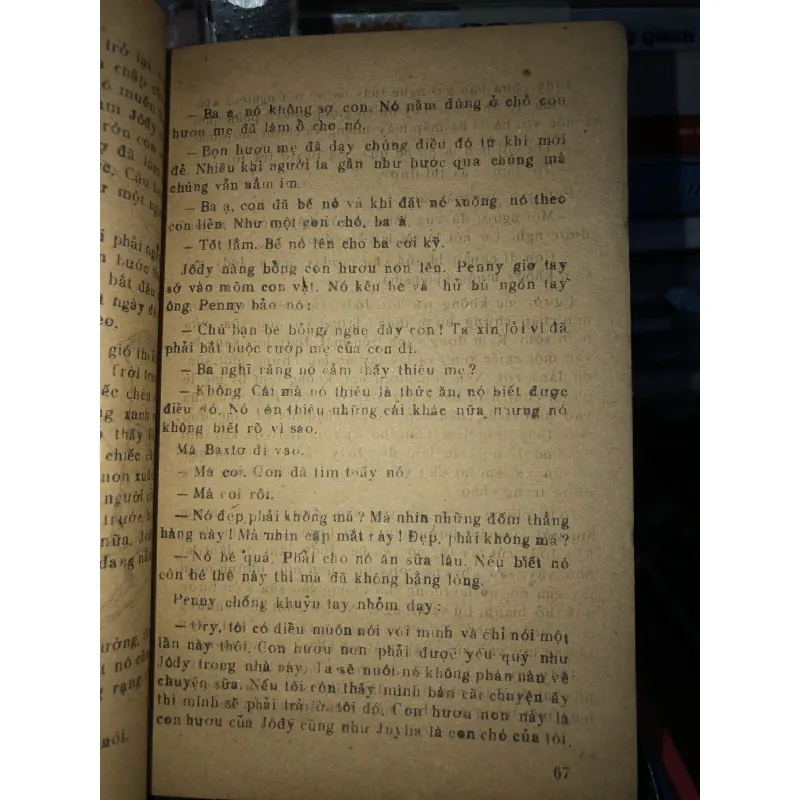 trở lại
chấp
nó muốn
ăm Jódy
rờn con
ợ đã làm
Câu
r một
i phải
bước
bắt đầu
ngày
eo.
gió
Trời
ếc
g xanh
thấy
chiếc
non
người
trước
nữa.
đang
ường,
nó
rạng
nói.
quan
— Ba ạ, nó không sợ con. Nó nằm đúng ở chỗ con
hươu mẹ đã làm ổ cho nó.
— Bọn hươu mẹ đã dạy chúng điều đó từ khi mới
đẻ. Nhiều khi người ta gần như bước qua chúng mà
chúng vẫn nằm im.
— Ba ạ, con đã bế nó và khi đặt nó xuống, nó theo
con liền. Như một con chó, ba à.
— Tốt lắm. Bế nó lên cho ba coi kỹ.
Jódy nâng bổng con hươu non lên. Penny giơ tay
sờ vào mõm con vật. Nó kêu be và thử bú ngón tay
ông. Penny bảo nó:
— Chú bạn bé bỏng, nghe đây con! Ta xin lỗi vì đã
phải bắt buộc cướp mẹ của con đi.
— Ba nghĩ rằng nó cảm thấy thiếu mẹ?
— Không. Cái mà nó thiếu là thức ăn, nó biết được
điều đó. Nó còn thiếu những cái khác nữa nhưng nó
không biết rõ vì sao.
Má Baxtơ đi vào.
— Má coi. Con đã tìm thấy nó.
— Má coi rồi.
— Nó đẹp phải không má? Má nhìn những đốm thẳng
hàng này! Má nhìn cặp mắt này! Đẹp, phải không má?
— Nó bé quá. Phải cho nó ăn sữa lâu. Nếu biết nó
còn bé thế này thì má đã không bằng lòng.
Penny chống khuỷu tay nhỏm dạy:
— Ory, tôi có điều muốn nói với mình và chỉ nói một
lần này thôi. Con hươu non phải được yêu quý như
Jódy trong nhà này. Ta sẽ nuôi nó không phàn nàn về
chuyện sữa. Nếu tôi còn thấy mình bàn cãi chuyện ấy
thì mình sẽ phải trả lời tôi đó. Con hươu non này là
con hươu của Jódy cũng như Juylia là con chó của tôi.
67